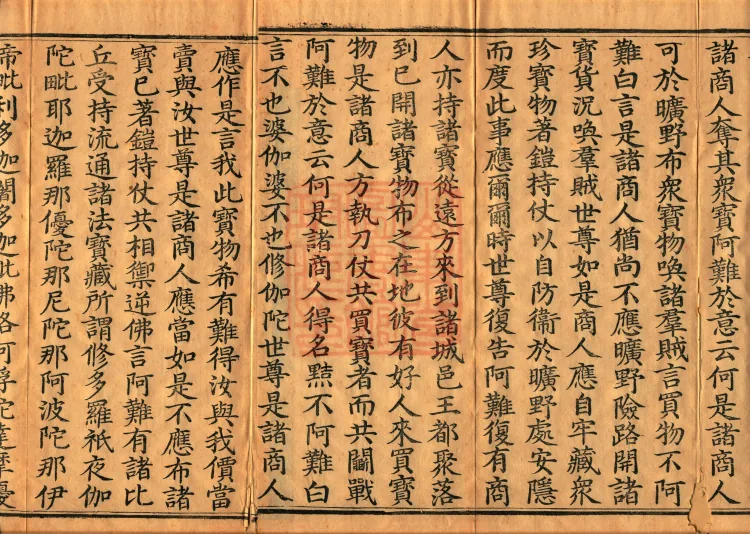 諸商人奪其衆寶阿難於意云何是諸商人
可於曠野布衆寶物喚諸羣賊言買物不阿
難白言是諸商人猶尚不應曠野險路開諸
寶貨況喚羣賊世尊如是商人應自牢藏衆
珍寶物著鎧持仗以自防衞於曠野處安隱
而度此事應爾爾時世尊復告阿難復有商
人亦持諸寶從遠方來到諸城邑王都聚落
到已開諸寶物布之在地彼有好人來買寶
物是諸商人方執刀仗共買寶者而共鬭戰
阿難於意云何是諸商人得名黠不阿難白
言不也婆伽婆不也修伽陀世尊是諸商人
應作是言我此寶物希有難得汝與我價當
賣與汝世尊是諸商人應當如是不應布諸
寶已著鎧持仗共相禦逆佛言阿難有諸比
丘受持流通諸法寶藏所謂修多羅祇夜伽
陀毗耶迦羅那優陀那尼陀那阿波陀那伊
帝毗利多伽闍多伽毗佛略阿浮陀達摩優